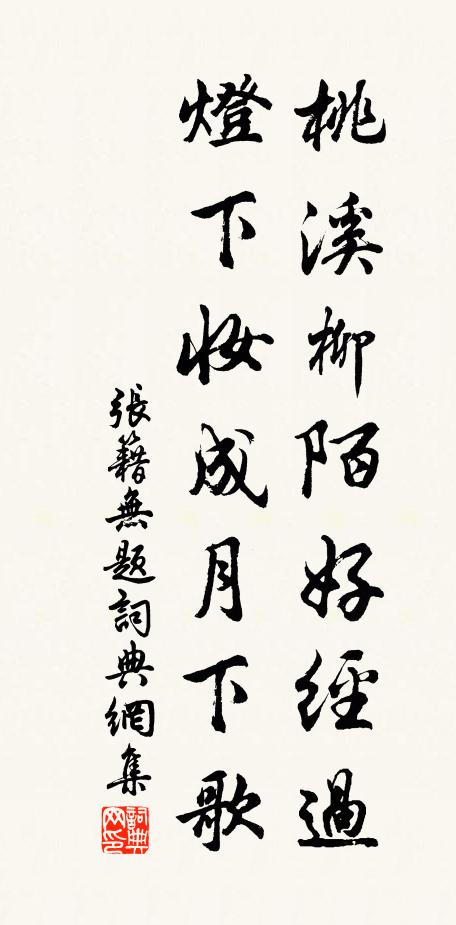 桃溪柳陌好經過
燈下妝成月下歌
張籍無題詞典網集
詞典網印